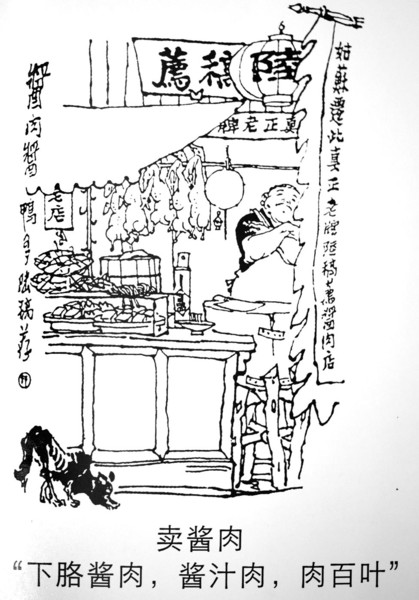 陸稿薦
真正老牌
姑蘇遷此真正老牌陸稿薦醬肉店
醬肉醬鴨稿荐
老店
卖酱肉
“下胳酱肉，酱汁肉，肉百叶”